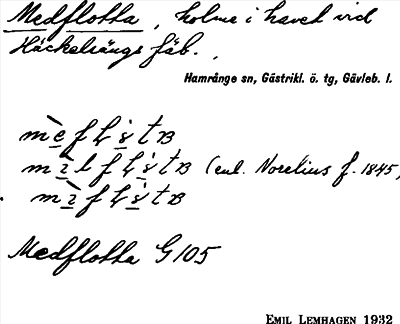 Medflotta, holme i havet vid
Häckelsängs fäb.
Hamrånge sn, Gästrikl. ö. tg, Gävleb. l.
(enl. Norelius f. 1845)
Medflotta G 105
EMIL LEMHAGEN 1932